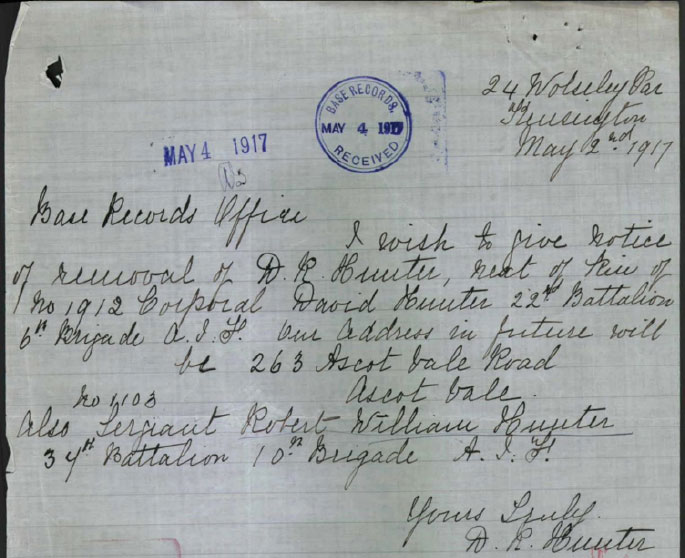 24 Wolseley Par
Kensington
May 2nd 1917
BASE RECORDS.
MAY 4 1917
RECEIVED
MAY 4 1917
Base Records Office
I wish to give notice
of removal of D. R. Hunter, next of kin of
No 1912 Corporal David Hunter 22nd Battalion
6th Brigade A. I. F. Our Address in future will
be 263 Ascot Vale Road
Ascot Vale.
No 1103
Also Sergeant Robert William Hunter
34th Battalion 10th Brigade A. I. F.
Yours Truly.
D. R. Hunter